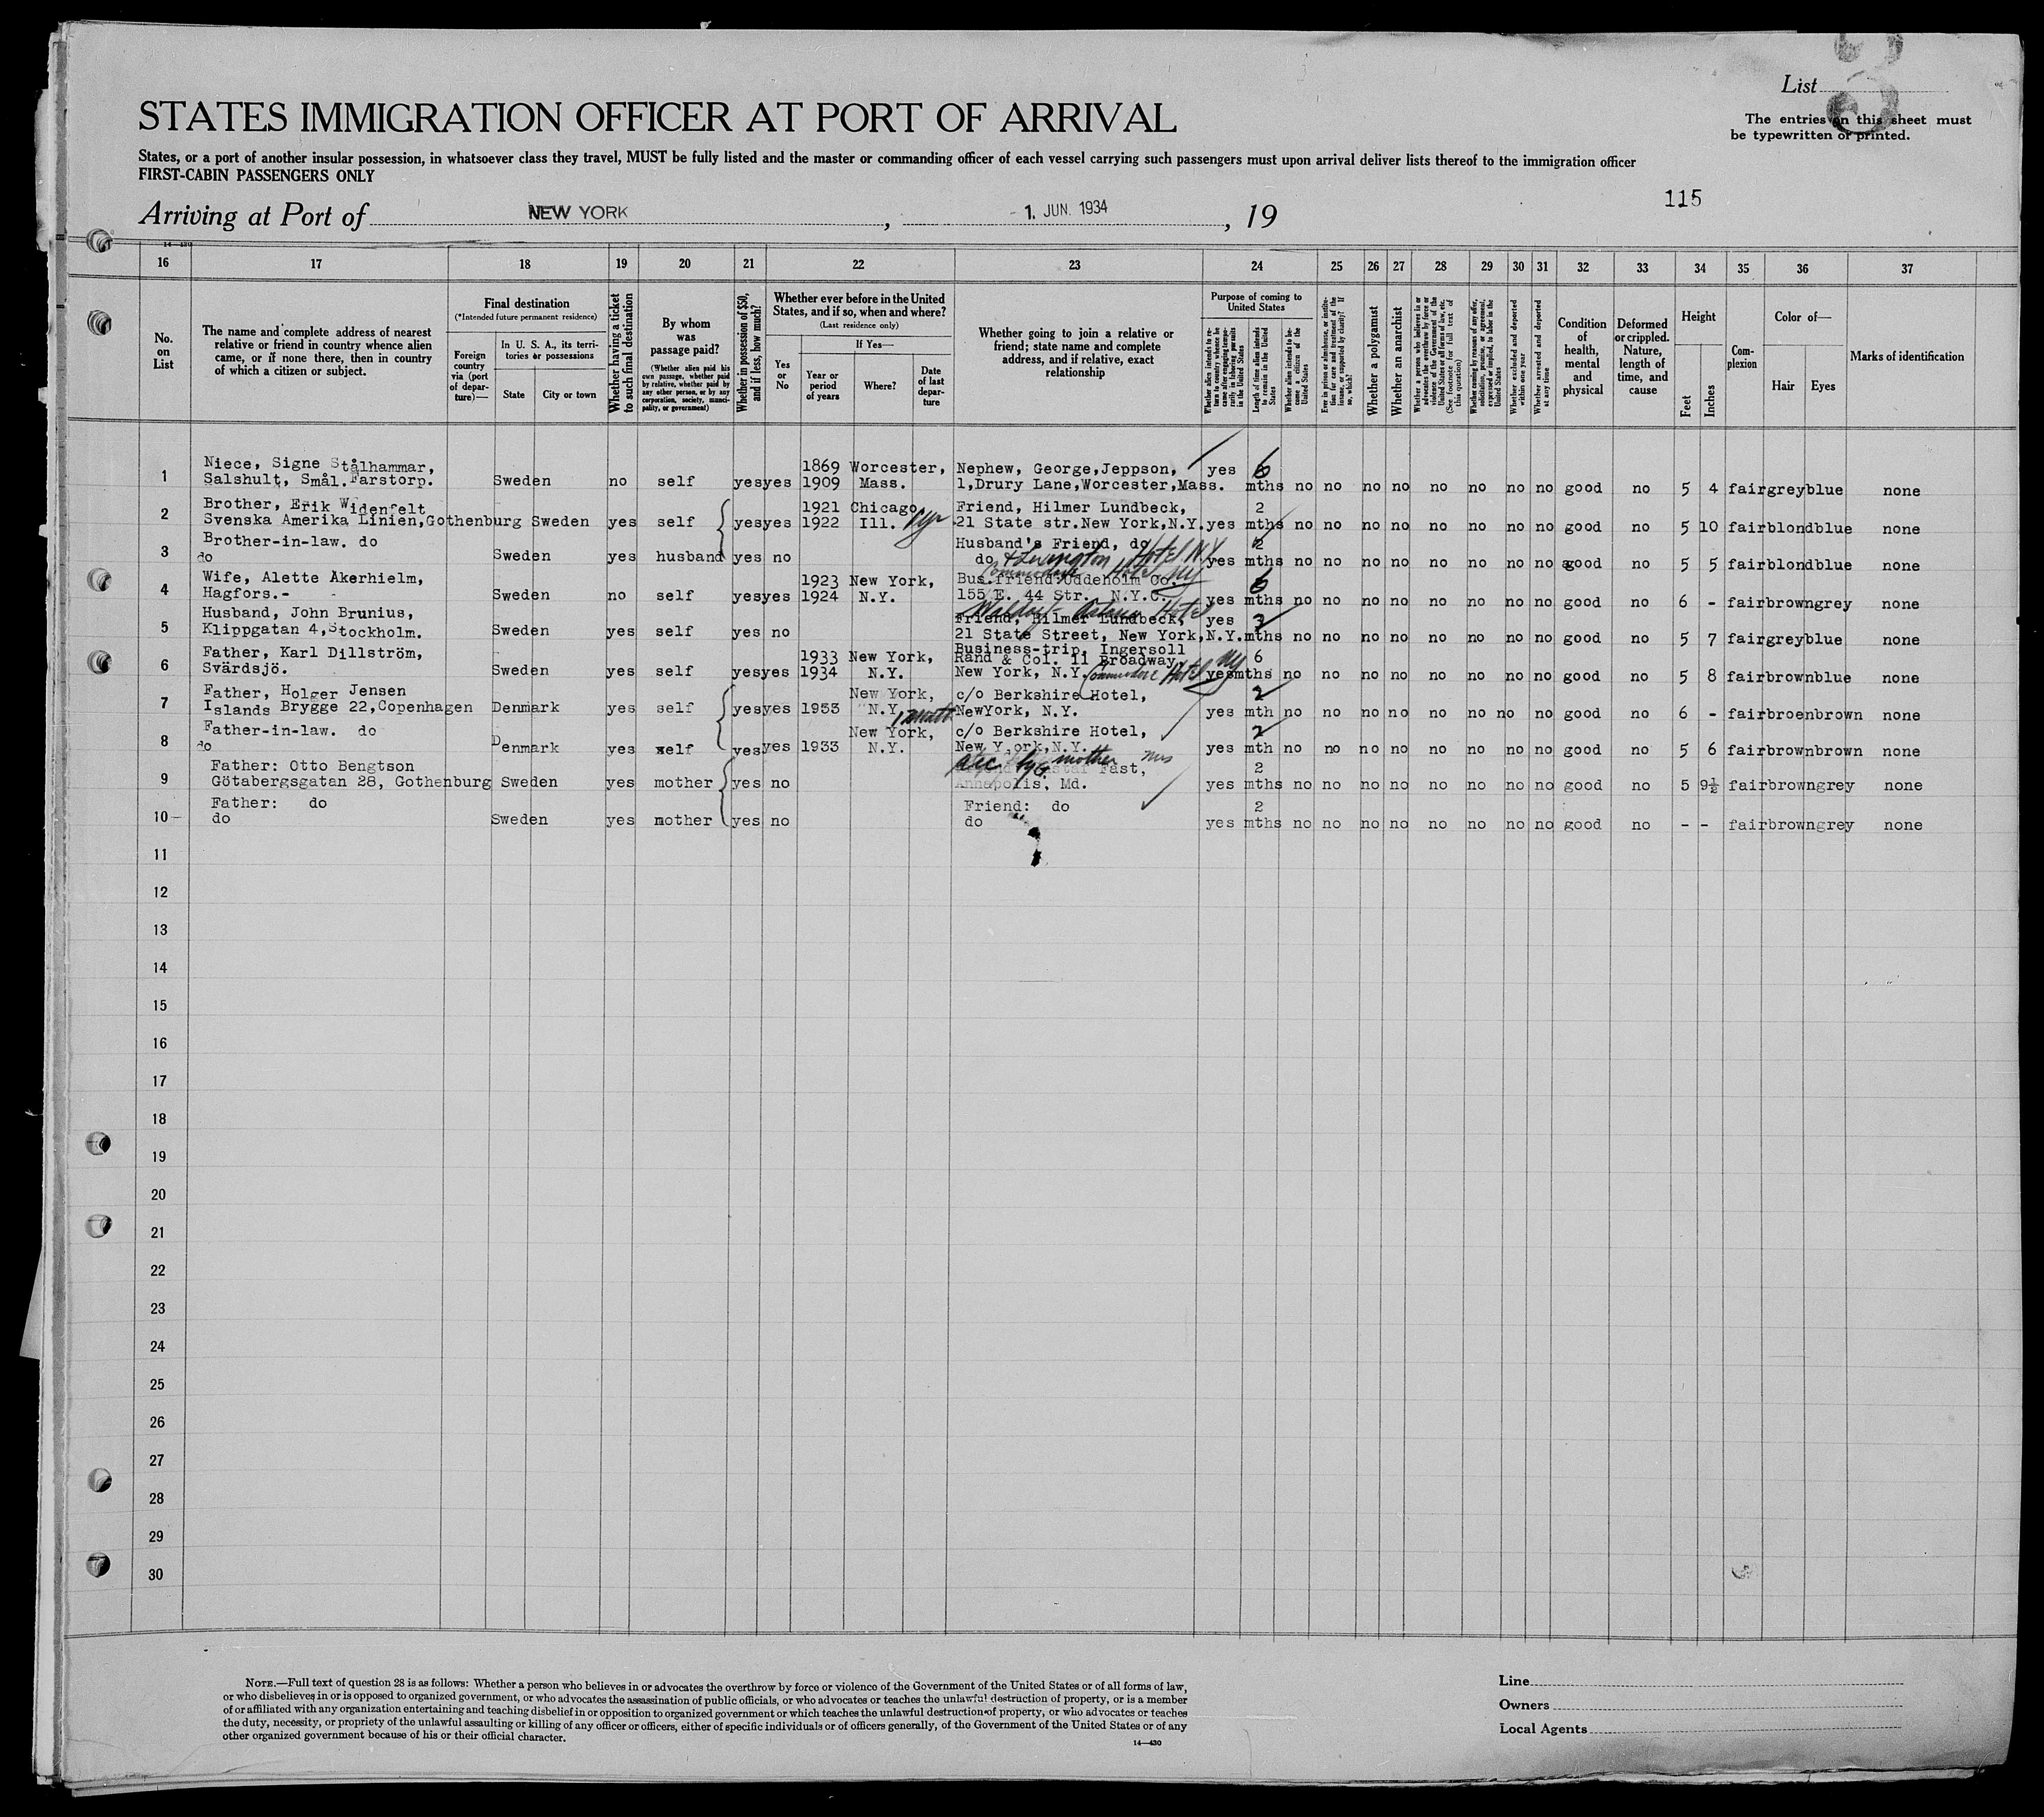 List
STATES IMMIGRATION OFFICER AT PORT OF ARRIVAL
The entries on this sheet must
be typewritten or printed.
States, or a port of another insular possession, in whatsoever class they travel, MUST be fully listed and the master or commanding officer of each vessel carrying such passengers must upon arrival deliver lists thereof to the immigration officer
FIRST-CABIN PASSENGERS ONLY
115
Arriving at Port of NEW YORK , 1. JUN. 1934 , 19
14-430
16 17 18 19 20 21 22 23 24 25 26 27 28 29 30 31 32 33 34 35 36 37
No.
on
List
The name and complete address of nearest
relative or friend in country whence alien
came, or if none there, then in country
of which a citizen or subject.
Final destination
(*Intended future permanent residence)
Foreign
country
via (port
of depar-
ture)—
In U. S. A., its terri-
tories or possessions
State
City or town
Whether having a ticket
to such final destination
By whom
was
passage paid?
(Whether alien paid his
own passage, whether paid
by relative, whether paid by
any other person, or by any
corporation, society, munici-
pality, or government)
Whether in possession of $50,
and if less, how much?
Whether ever before in the United
States, and if so, when and where?
(Last residence only)
Yes
or
No
If Yes—
Year or
period
of years
Where?
Date
of last
depar-
ture
Whether going to join a relative or
friend; state name and complete
address, and if relative, exact
relationship
Purpose of coming to
United States
Whether alien intends to re-
turn to country whence he
came after engaging tempo-
rarily in laboring pursuits
in the United States
Length of time alien intends
to remain in the United
States
Whether alien intends to be-
come a citizen of the
United States
Ever in prison or almshouse, or institu-
tion for care and treatment of the
insane, or supported by charity? If
so, which?
Whether a polygamist
Whether an anarchist
Whether a person who believes in or
advocates the overthrow by force or
violence of the Government of the
United States or all forms of law, etc.
(See footnote for full text of
this question)
Whether coming by reason of any offer,
solicitation, promise, or agreement,
expressed or implied, to labor in the
United States
Whether excluded and deported
within one year
Whether arrested and deported
at any time
Condition
of
health,
mental
and
physical
Deformed
or crippled.
Nature,
length of
time, and
cause
Height
Feet
Inches
Com-
plexion
Color of—
Hair
Eyes
Marks of identification
Niece, Signe Stålhammar, 1869 Worcester, Nephew, George,Jeppson, yes 6
1 Salshult, Smål.Farstorp. Sweden no self yes yes 1909 Mass. 1,Drury Lane,Worcester,Mass. mths no no no no no no no no good no 5 4 fair grey blue none
Brother, Erik Widenfelt 1921 Chicago Friend, Hilmer Lundbeck, 2
2 Svenska Amerika Linien,Gothenburg Sweden yes self yes yes 1922 Ill. 21 State str.New York,N.Y. yes mths no no no no no no no no good no 5 10 fair blond blue none
Brother-in-law. do Husband's Friend, do 2
3 do Sweden yes husband yes no do Lexington Hotel N.Y. yes mths no no no no no no no no good no 5 5 fair blond blue none
Commodore Hotel NY
Wife, Alette Akerhielm, 1923 New York, Bus.friend:Uddeholm Co. 6
4 Hagfors.- - Sweden no self yes yes 1924 N.Y. 155 E. 44 Str. N.Y.C. yes mths no no no no no no no no good no 6 - fair brown grey none
Waldorf-Astoria Hotel
Husband, John Brunius, Friend, Hilmer Lundbeck, yes 2
5 Klippgatan 4,Stockholm. Sweden yes self yes no 21 State Street, New York,N.Y. mths no no no no no no no no good no 5 7 fair grey blue none
Father, Karl Dillström, 1933 New York, Business-trip, Ingersoll
Rand & Col. 11 Broadway 6
6 Svärdsjö. Sweden yes self yes yes 1934 N.Y. New York, N.Y. Commodore Hotel NY yes mths no no no no no no no no good no 5 8 fair brown blue none
Father, Holger Jensen New York, c/o Berkshire Hotel, 2
7 Islands Brygge 22,Copenhagen Denmark yes self yes yes 1933 N.Y. 1 month NewYork, N.Y. yes mth no no no no no no no no good no 6 - fair broen brown none
Father-in-law. do New York, c/o Berkshire Hotel, 2
8 do Denmark yes self yes yes 1933 N.Y. New York,N.Y. yes mth no no no no no no no no good no 5 6 fair brown brown none
mother
Father: Otto Bengtson Fast, 2
9 Götabergsgatan 28, Gothenburg Sweden yes mother yes no Annapolis, Md. yes mths no no no no no no no no good no 5 9½ fair brown grey none
Father: do Friend: do 2
10 do Sweden yes mother yes no do yes mths no no no no no no no no good no - - fair brown grey none
11
12
13
14
15
16
17
18
19
20
21
22
23
24
25
26
27
28
29
30
NOTE.—Full text of question 28 is as follows: Whether a person who believes in or advocates the overthrow by force or violence of the Government of the United States or of all forms of law,
or who disbelieves in or is opposed to organized government, or who advocates the assassination of public officials, or who advocates or teaches the unlawful destruction of property, or is a member
of or affiliated with any organization entertaining and teaching disbelief in or opposition to organized government or which teaches the unlawful destruction of property, or who advocates or teaches
the duty, necessity, or propriety of the unlawful assaulting or killing of any officer or officers, either of specific individuals or of officers generally, of the Government of the United States or of any
other organized government because of his or their official character.
14—430
Line
Owners
Local Agents